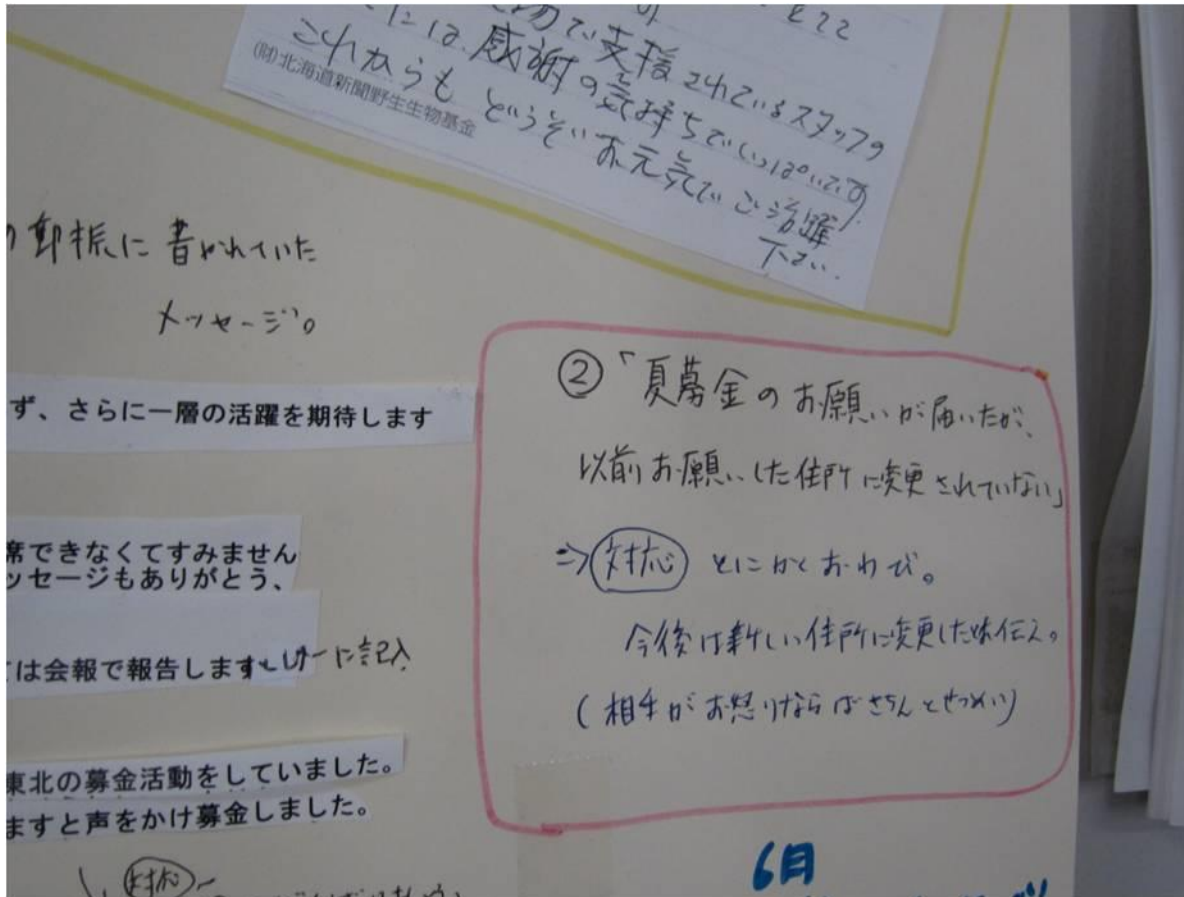 場で支援されているスタッフの
には、感謝の気持ちでいっぱいです。
これからも どうぞ お元気で ご活躍
下さい。
(財)北海道新聞野生生物基金
の郵振に書かれていた
メッセージ。
ず、さらに一層の活躍を期待します
席できなくてすみません
ッセージもありがとう、
ては会報で報告します
に記入
東北の募金活動をしていました。
ますと声をかけ募金しました。
対応
②「夏募金のお願いが届いたが、
以前お願いした住所に変更されていない」
⇒対応 とにかくおわび。
今後は新しい住所に変更した旨伝え。
(相手がお怒りならばきちんとせつめい)
6月